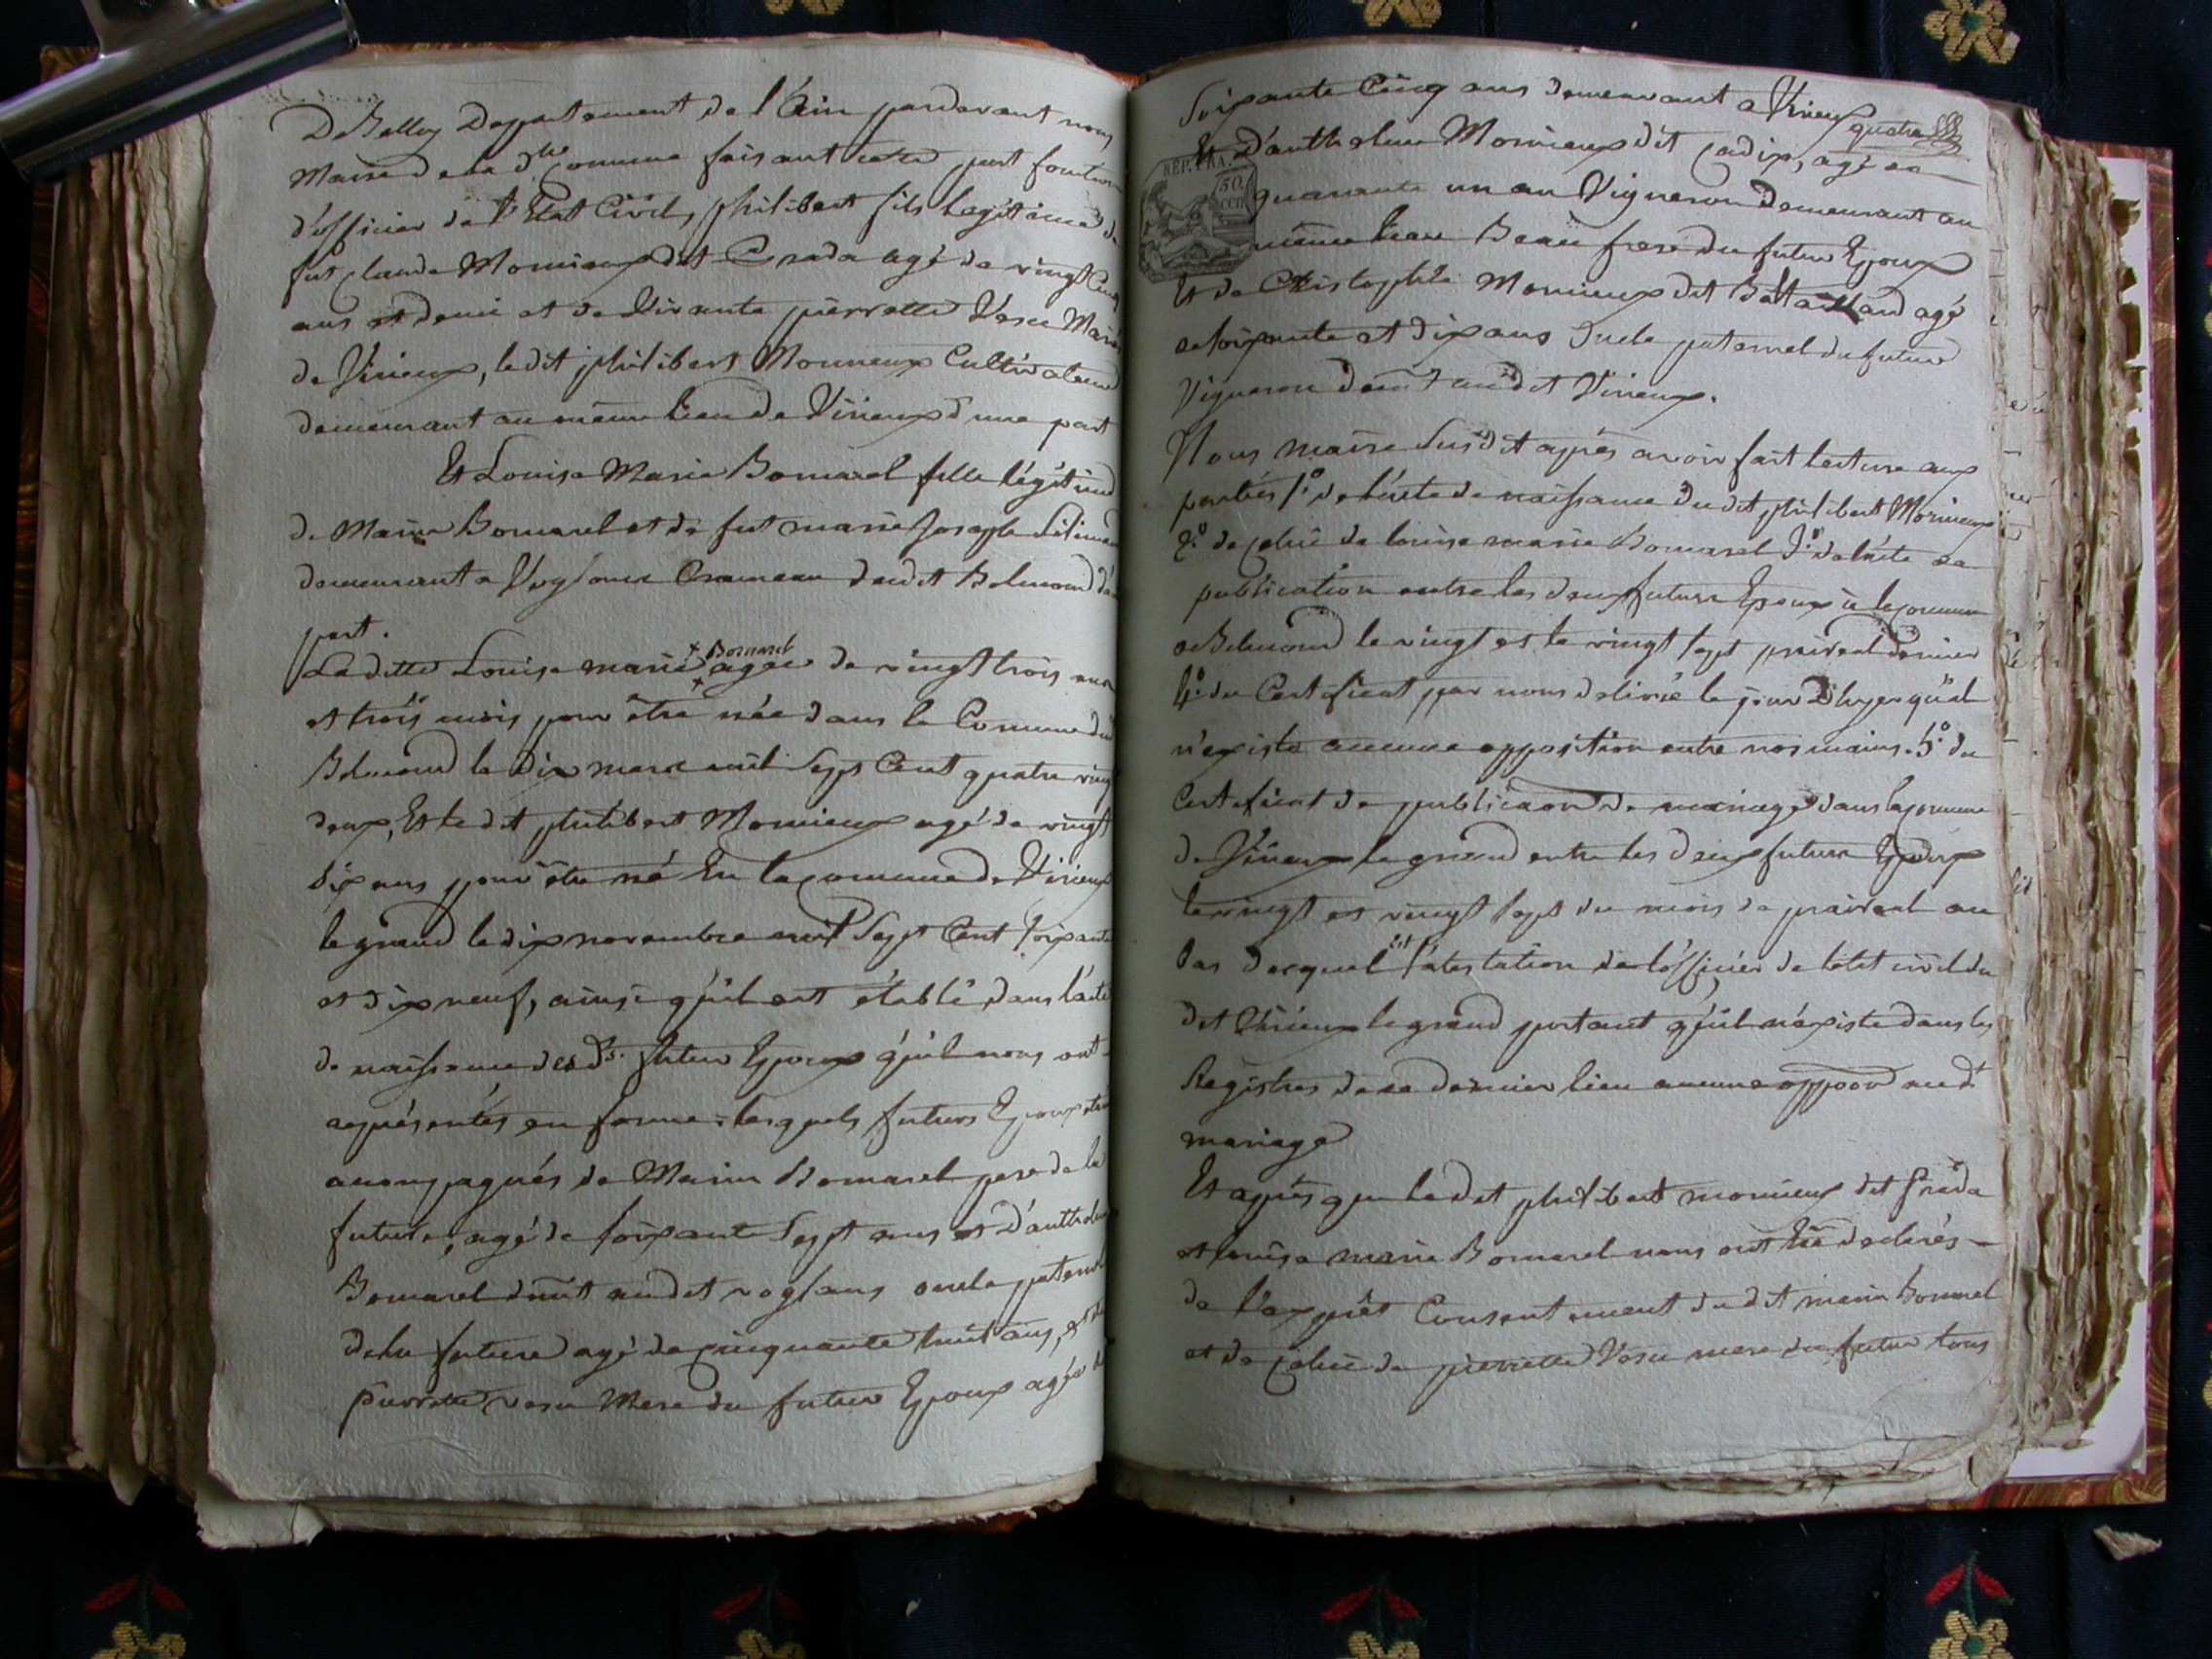 De Belley Departement de l'Ain pardevant nous
Maire de la dte Commune faisant
d'officier de l'Etat Civil, philibert fils legitime de
fut claude Monieux dit Grada agé de vingt cinq
ans et demi et de vivante pierrette Vesu Mariés
de Virieux, ledit philibert Monieux Cultivateur
demeurant au même lieu de Virieux d'une part
Et Louise Marie Bornarel fille légitime
de Marin Bornarel et de fut marie Josephe
demeurant a Voglans hameau dudit Belmond d'a
part.
Laditte Louise marie + Bornarel + agée de vingt trois ans
et trois mois pour être née dans la Commune du
Belmond le dix mars mil Sept Cent quatre vingt
deux, Et le dit philibert Monieux agé de vingt
six ans pour être né En la commune de Virieux
le grand le dix novembre mil Sept Cent soixante
et dix neuf, ainsi qu'il est établi dans l'acte
de naissance des ds. futur Epoux qu'il nous ont
représentés en forme : lesquels futurs Epoux
accompagnés de Marin Bornarel pere de la
future, agé de soixante Sept ans et d'anthelme
Bornarel dmt audit voglans oncle paternel
de la future agé de cinquante huit ans, et de
pierrette vesu Mere du futur Epoux agée de
Soixante Cinq ans demeurant a Virieux quatre
Et d'anthelme Monieux dit cadix, agé de
REP. FRA. 50 CEN
quarante un an Vigneron demeurant au
même lieu Beau frere du futur Epoux
Et de Christophle Monieux dit Bataillard agé
de soixante et dix ans Oncle paternel du futur
Vigneron demt audit Virieux.
Nous maire Susdit après avoir fait lecture aux
parties 1o. de l'acte de naissance du dit philibert Monieux
2o. de celui de louise marie Bornarel 3o. de l'acte de
publication entre les deux futurs Epoux à la commune
de Belmond le vingt et le vingt sept prairial dernier
4o. du Certificat par nous délivré le jour D'hyer qu'il
n'existe aucune opposition entre nos mains. 5o. du
Certificat de publicaon de mariage dans la commune
de Virieux le grand entre les deux futurs Epoux
le vingt et vingt sept du mois de prairial au
bas duquel est l'atestation de l'officier de l'etat civil du
dit Virieux le grand portant qu'il n'existe dans les
Registres de ce dernier lieu aucune oppoon aud
mariage
Et après que ledit philibert monieux dit Grada
et louise marie Bornarel nous ont Eü declarés
de l'exprêt Consentement du dit marin Bornarel
et de celui de pierrette Vesu mere du futur tous